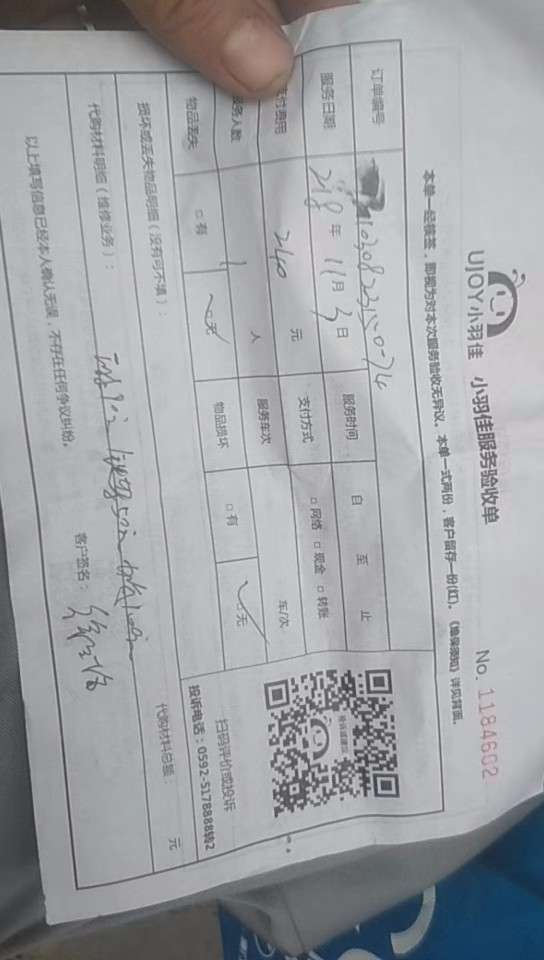 UJOY小羽佳 小羽佳服务验收单 No. 1184602
本单一经核签，即视为对本次服务验收无异议。本单一式两份，客户留存一份(红)。《维保须知》详见背面。
订单编号
服务日期 年 11月3日 服务时间 自 至 止
支付费用 240 元 支付方式 □网络 □现金 □转账
服务人数 1 人 服务车次 车/次
物品丢失 □有 □无 物品损坏 □有 □无
扫码评价或投诉
投诉电话：0592-5178888转2
损坏或丢失物品明细（没有可不填）：
代购材料明细（维修业务）： 代购材料总额： 元
以上填写信息已经本人确认无误，不存在任何争议纠纷。 客户签名：